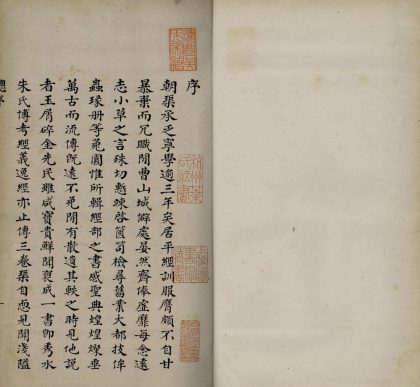 序
朝渠承乏寧學逾三年矣居平經訓服膺頗不自甘
暴棄而冗職閒曹山城僻處晏然齋俸虛靡每念遠
志小草之言殊切慙竦啓篋笥檢尋舊業大都技侔
蟲瑑册等兎園惟所輯經部之書感聖典煌煌燦垂
萬古而流傳既遠不免閒有散遺其軼之時見他說
者玉屑碎金先民雖咸寶貴鮮聞裒成一書即秀水
朱氏博考經義逸經亦止傳三卷渠自慙見聞淺隘